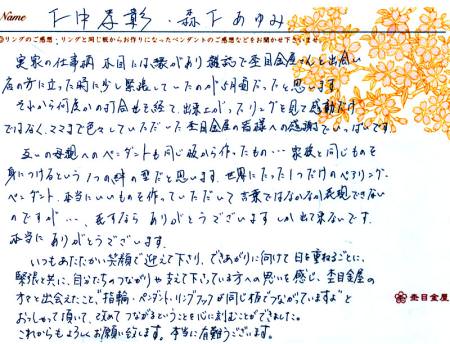 Name 下中孝彰・森下あゆみ
◎リングのご感想・リングと同じ板からお作りになったペンダントのご感想などをお聞かせ下さいませ。
実家の仕事柄 木目には縁があり雑誌で杢目金屋さんと出会い
店の方に立った時に少し緊張していたのが5月頃だったと思います。
それから何度かの打合せを経て、出来上がったリングを見て感動だけ
ではなく、ココまで色々していただいた杢目金屋の皆様への感謝でいっぱいです
互いの母親へのペンダントも同じ板から作ったもの… 家族と同じものを
身につけるという1つの絆の型だと思います。世界にたった1つだけのペアリング、
ペンダント、本当にいいものを作っていただいて言葉ではなかなか表現できない
のですが…、表すなら ありがとうございます しか出て来ないです。
本当に ありがとうございます。
いつもあたたかい笑顔で迎えて下さり、できあがりに向けて日を重ねるごとに、
緊張と共に、自分たちのつながりや支えて下さっている方への思いを感じ、杢目金屋の
方々と出会えたこと、"指輪・ペンダント・リングファイが同じ板でつながっていますよ"と
おっしゃって頂いて、改めて つながるということを心に刻むことができました。
これからもよろしくお願い致します。本当に有難うございます。
杢目金屋